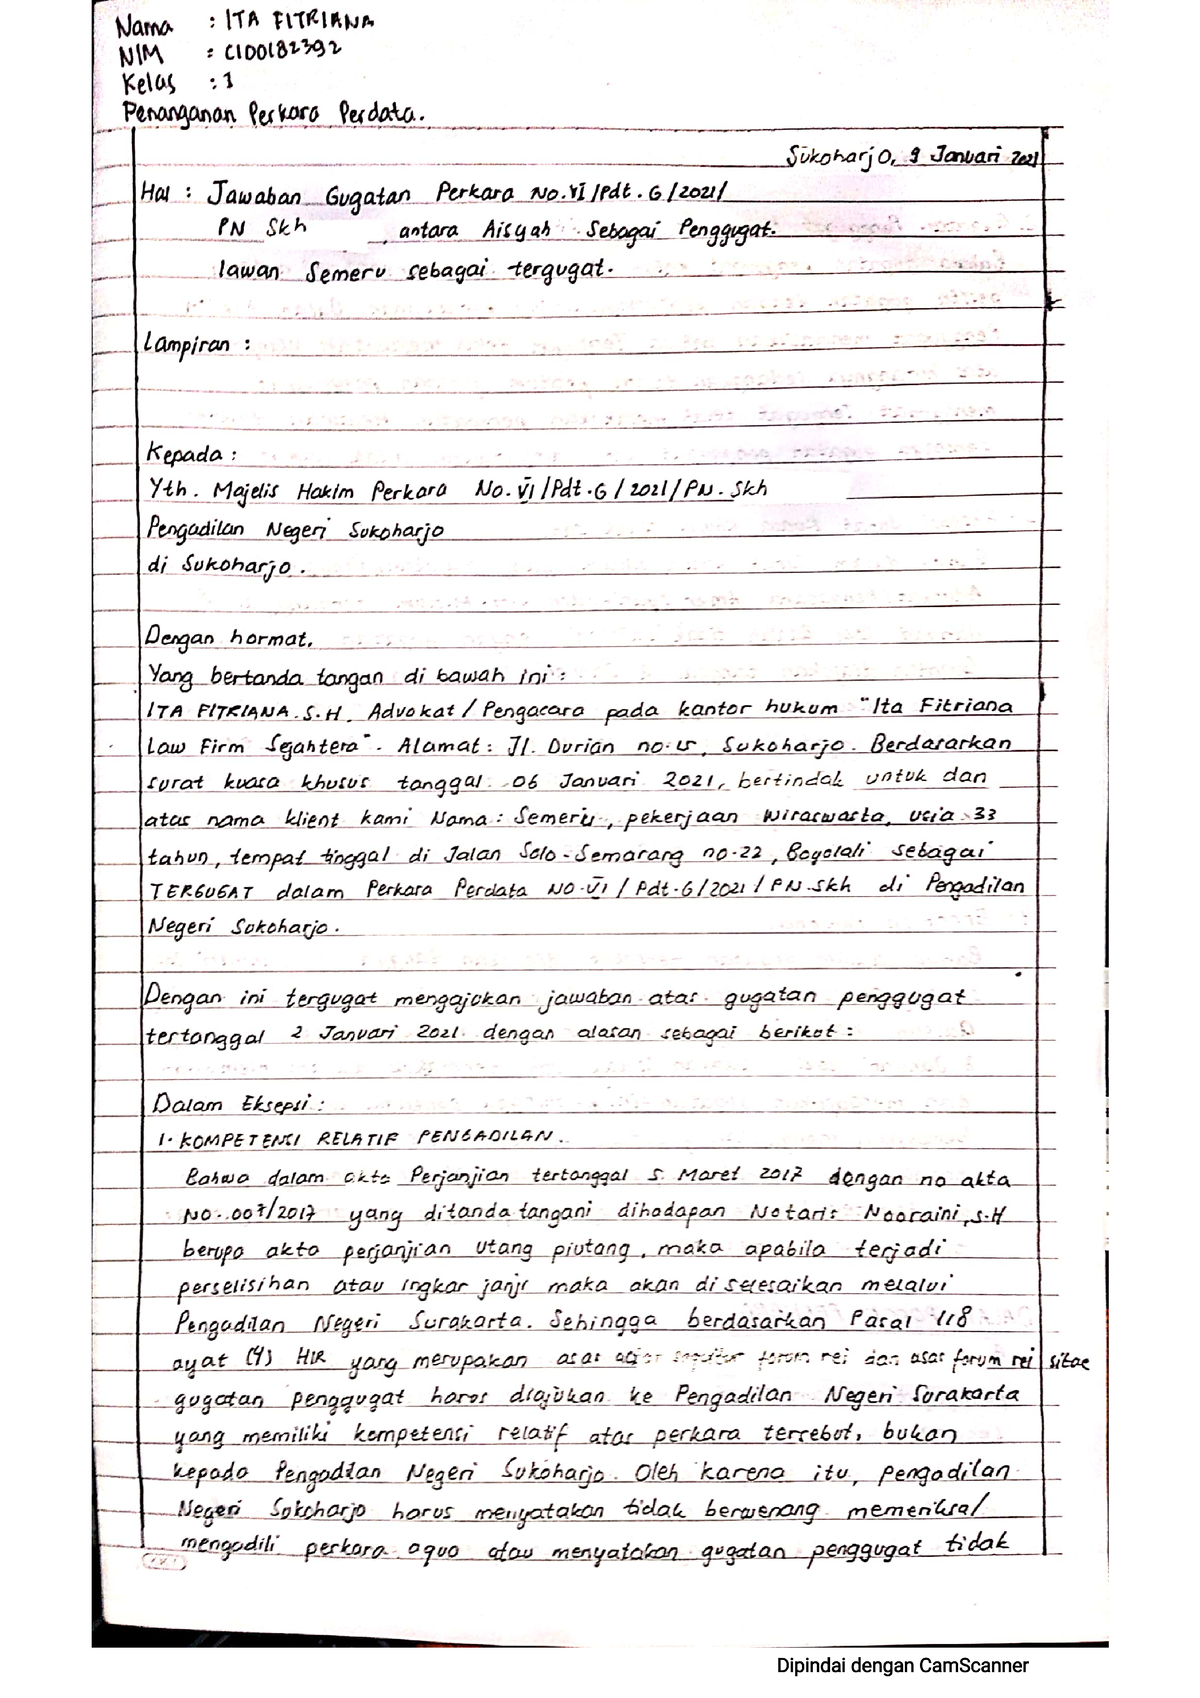 Nama : ITA FITRIANA
NIM : C100182392
Kelas : I
Penanganan Perkara Perdata.
Sukoharjo, 9 Januari 2021
Hal : Jawaban Gugatan Perkara No.VI/Pdt.G/2021/
PN Skh , antara Aisyah Sebagai Penggugat.
lawan Semeru sebagai tergugat.
Lampiran :
Kepada :
Yth. Majelis Hakim Perkara No.VI/Pdt.G/2021/PN.Skh
Pengadilan Negeri Sukoharjo
di Sukoharjo.
Dengan hormat,
Yang bertanda tangan di bawah ini :
ITA FITRIANA.S.H. Advokat/Pengacara pada kantor hukum "Ita Fitriana
Law Firm Sejahtera". Alamat : Jl. Durian no. , Sukoharjo. Berdasarkan
surat kuasa khusus tanggal 06 Januari 2021, bertindak untuk dan
atas nama klient kami Nama : Semeru, pekerjaan wiraswasta, usia 33
tahun, tempat tinggal di Jalan Solo-Semarang no.22, Boyolali sebagai
TERGUGAT dalam Perkara Perdata NO.VI/Pdt.G/2021/PN.Skh di Pengadilan
Negeri Sukoharjo.
Dengan ini tergugat mengajukan jawaban atas gugatan penggugat
tertanggal 2 Januari 2021 dengan alasan sebagai berikut :
Dalam Eksepsi :
1. KOMPETENSI RELATIF PENGADILAN.
Bahwa dalam akta Perjanjian tertanggal 5 Maret 2017 dengan no akta
No. 007/2017 yang ditanda tangani dihadapan Notaris Nooraini, S.H
berupa akta perjanjian utang piutang, maka apabila terjadi
perselisihan atau ingkar janji maka akan di selesaikan melalui
Pengadilan Negeri Surakarta. Sehingga berdasarkan Pasal 118
ayat (4) HIR yang merupakan asas actor sequitur forum rei dan asas forum rei sitae
gugatan penggugat harus diajukan ke Pengadilan Negeri Surakarta
yang memiliki kompetensi relatif atas perkara tersebut, bukan
kepada Pengadilan Negeri Sukoharjo. Oleh karena itu, pengadilan
Negeri Sukoharjo harus menyatakan tidak berwenang memeriksa/
mengadili perkara aquo atau menyatakan gugatan penggugat tidak
Dipindai dengan CamScanner